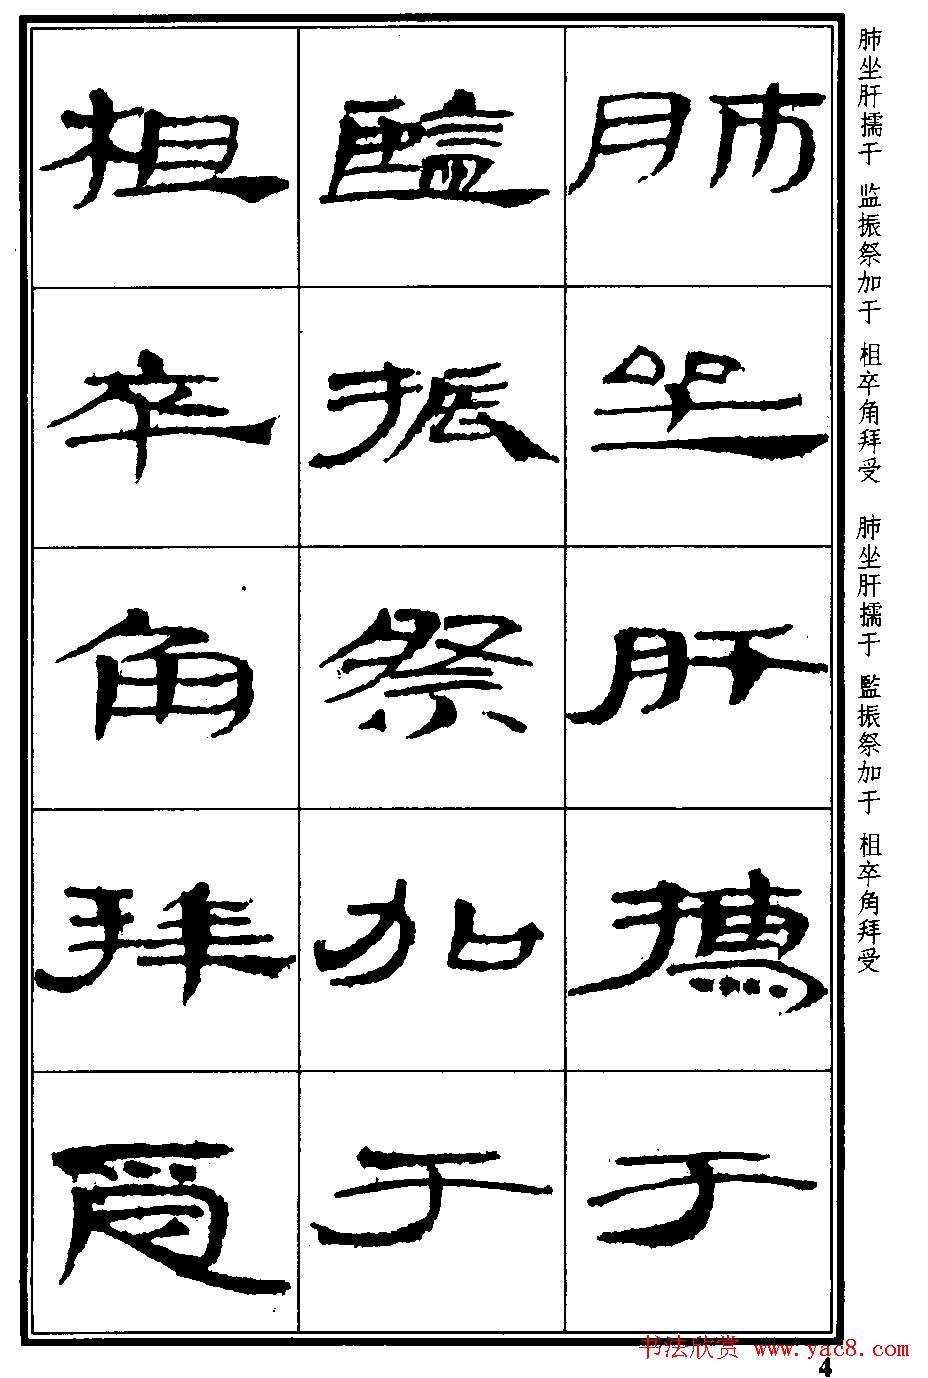 肺坐肝擩于 监振祭加于 柤卒角拜受 肺坐肝擩于 監振祭加于 柤卒角拜受
肺坐肝擩于
鹽振祭加于
柤卒角拜受
书法欣赏 www.yac8.com
4